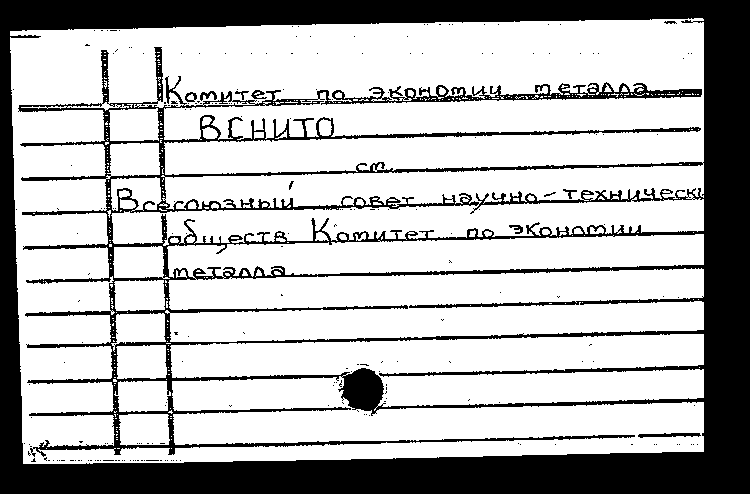 Комитет по экономии металла
ВСНИТО
см.
Всесоюзный совет научно-технически
обществ Комитет по экономии
металла